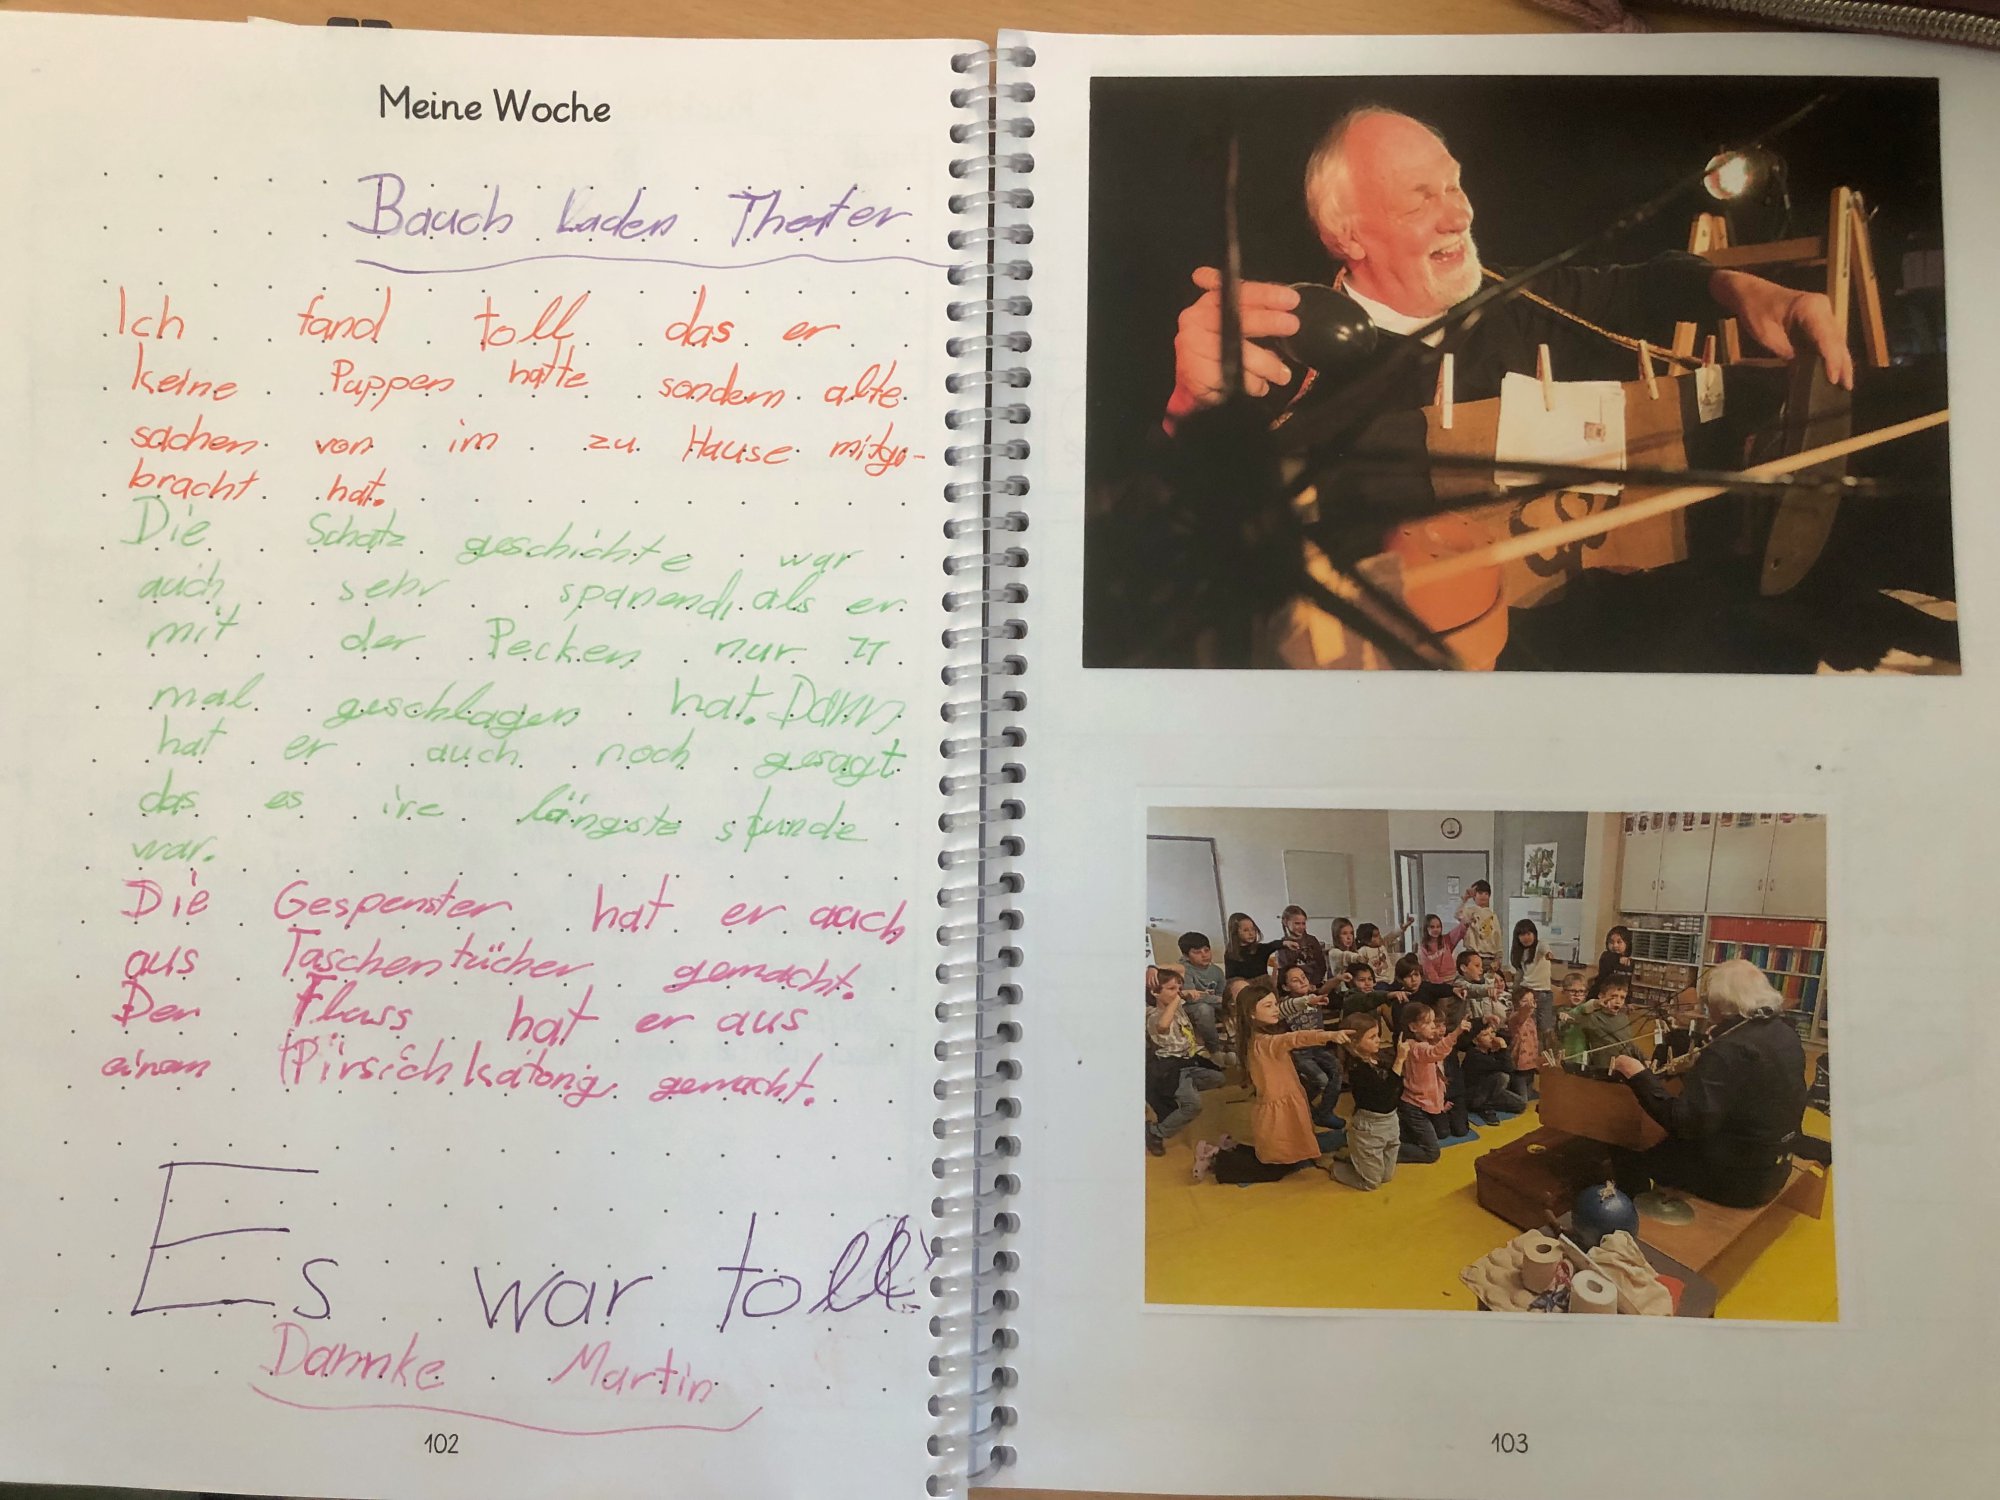 Meine Woche
Bauch Laden Theater
Ich fand toll das er
keine Puppen hatte sondern alte
sachen von im zu Hause mitge-
bracht hat.
Die Schatz geschichte war
auch sehr spanend, als er
mit der Pecken nur 11
mal geschlagen hat. Dann
hat er auch noch gesagt
das es ire längste stunde
war.
Die Gespenster hat er auch
aus Taschentücher gemacht.
Den Fluss hat er aus
einem Pirsich katong gemacht.
Es war toll!
Dannke Martin
102
103